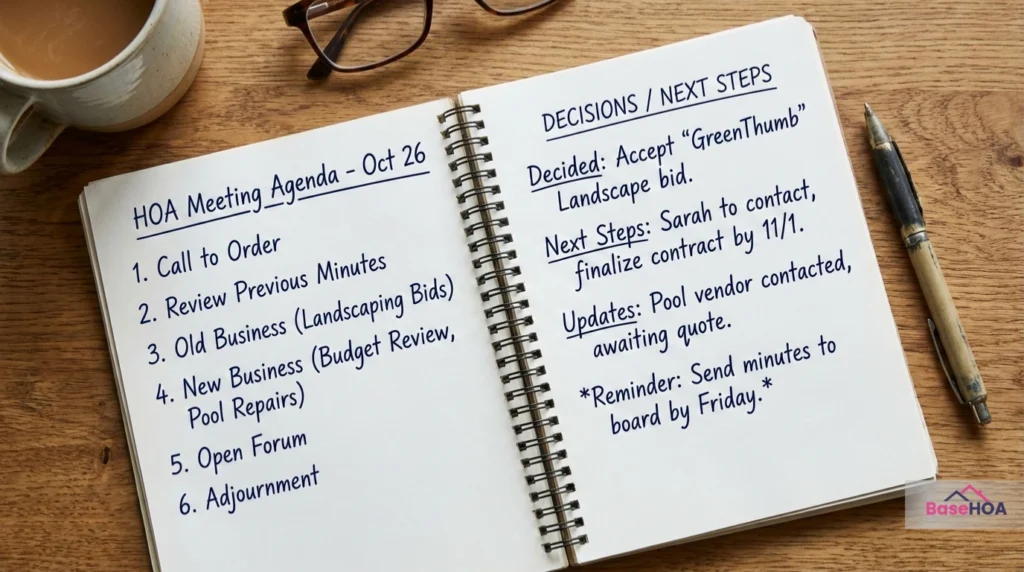 HOA Meeting Agenda - Oct 26
1. Call to Order
2. Review Previous Minutes
3. Old Business (Landscaping Bids)
4. New Business (Budget Review,
Pool Repairs)
5. Open Forum
6. Adjournment
DECISIONS / NEXT STEPS
Decided: Accept “GreenThumb”
Landscape bid.
Next Steps: Sarah to contact,
finalize contract by 11/1.
Updates: Pool vendor contacted,
awaiting quote.
*Reminder: Send minutes to
board by Friday.*
BaseHOA